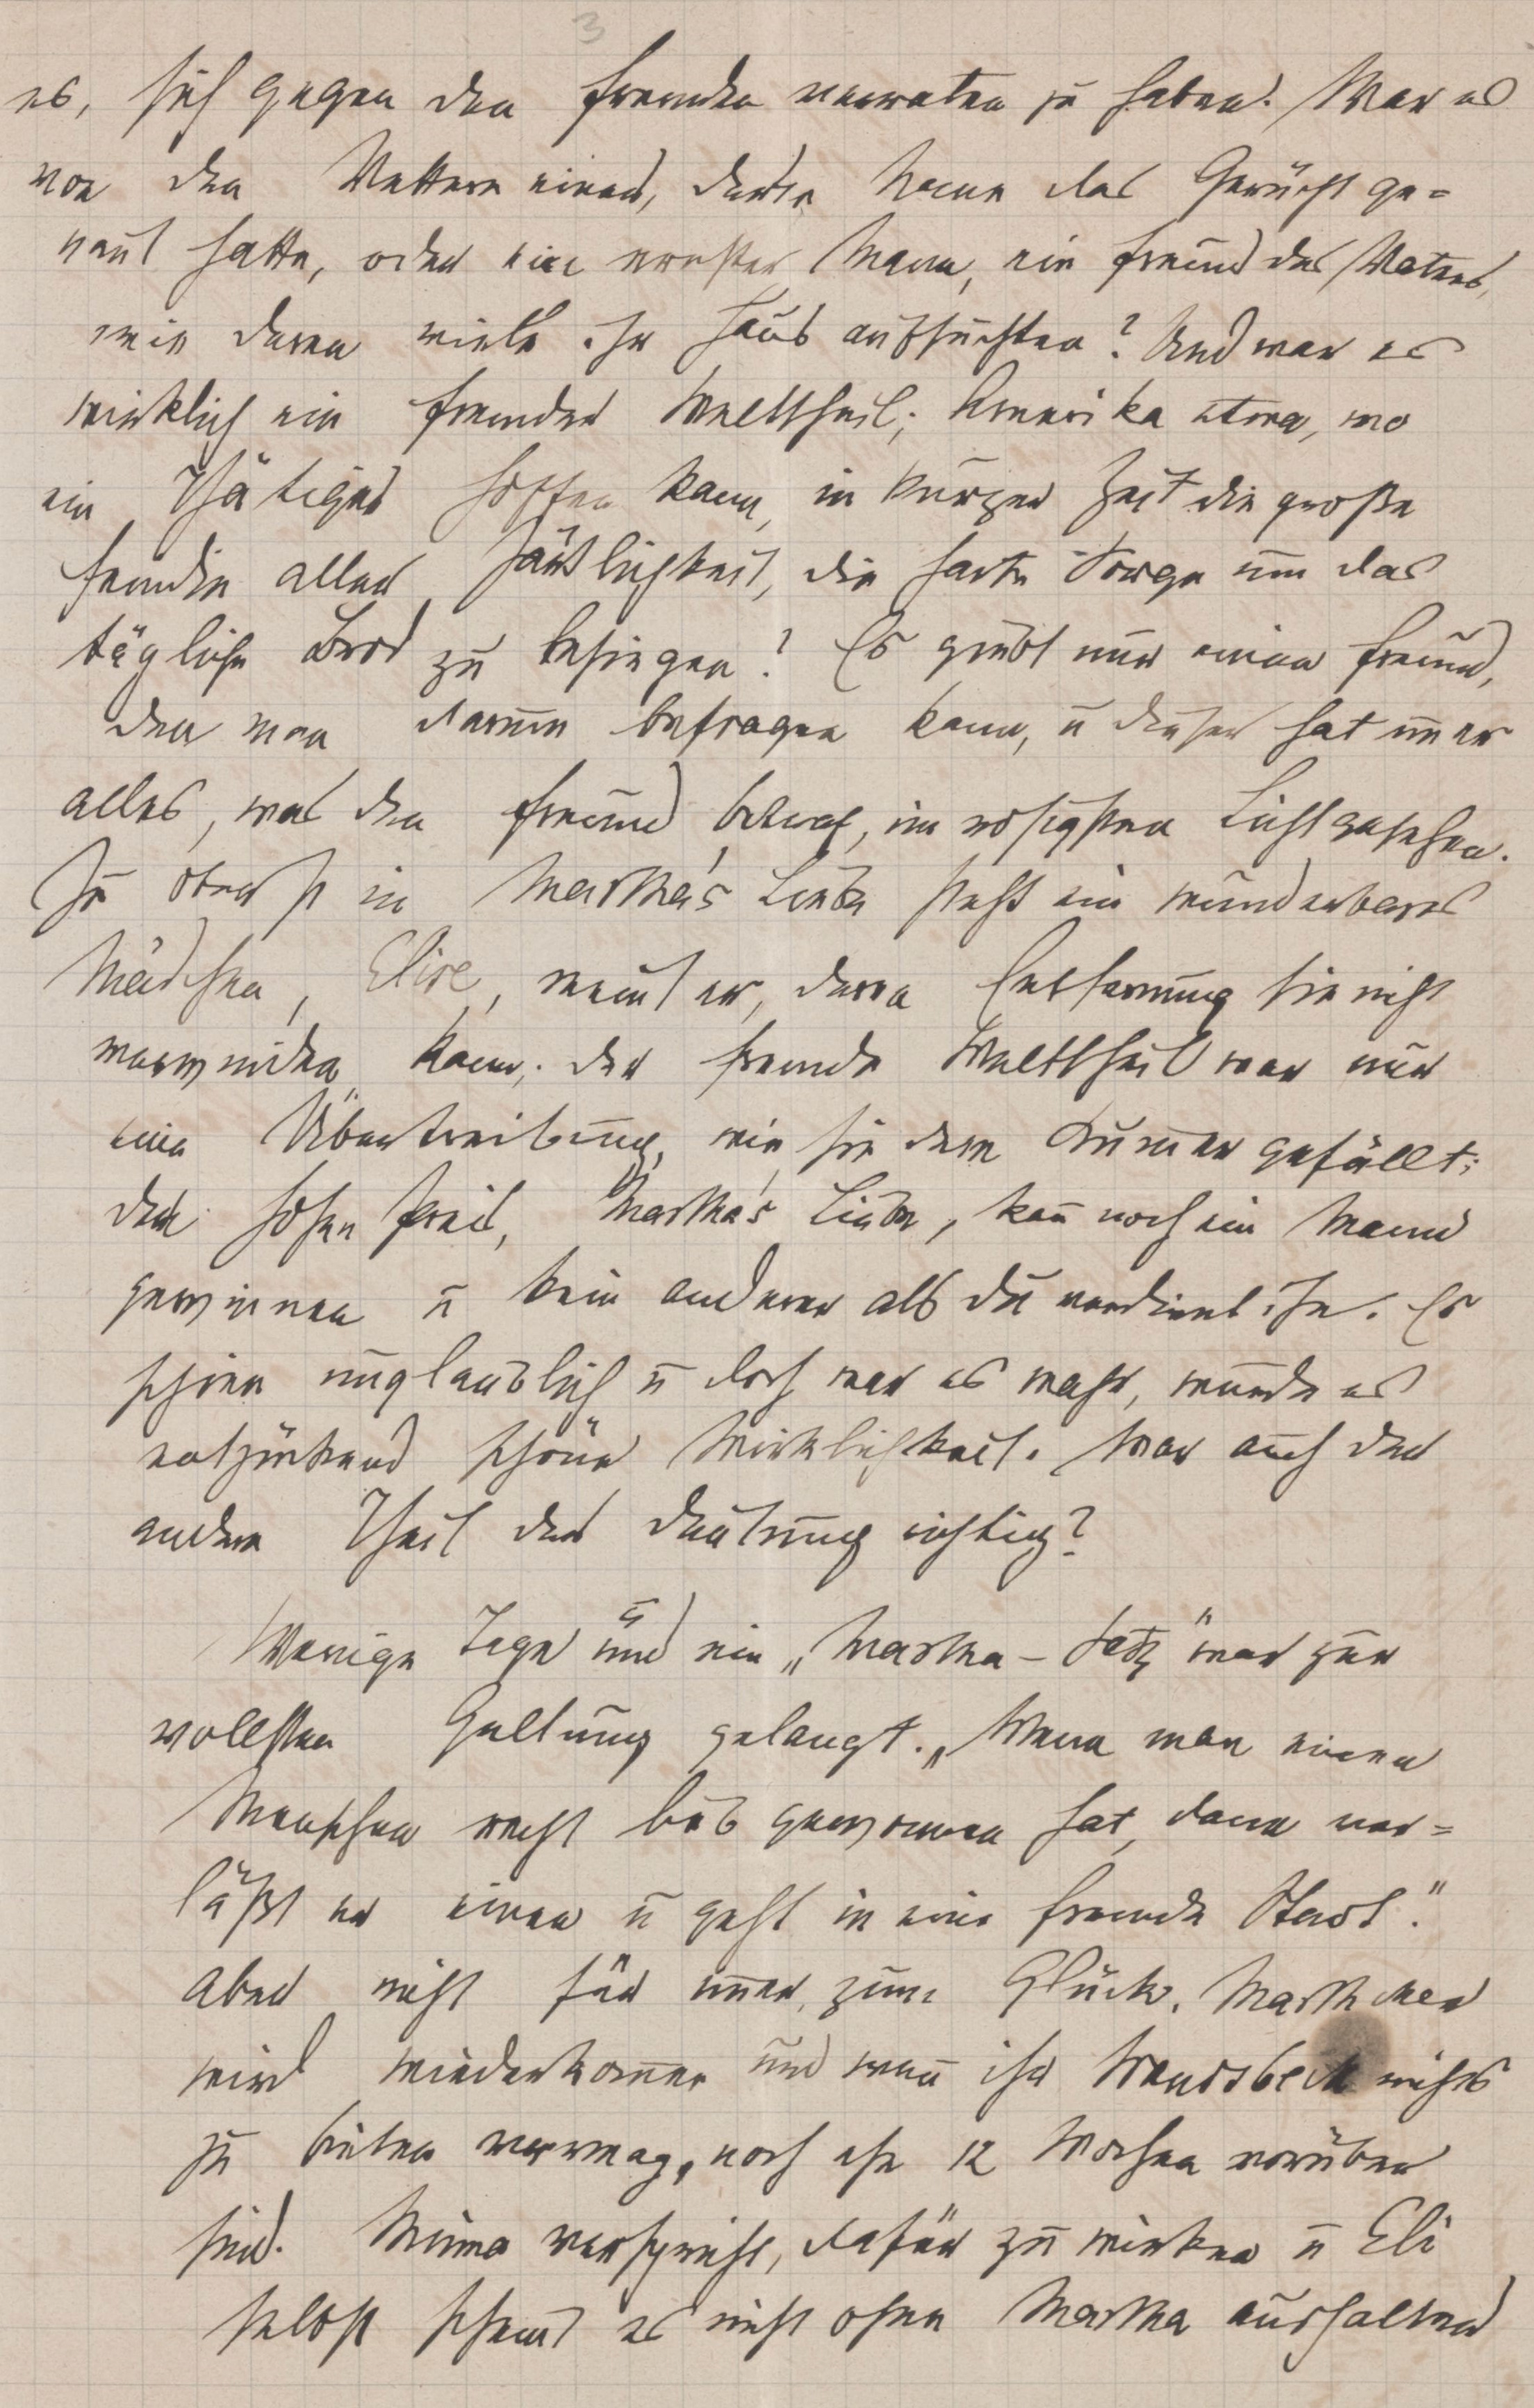 3
es, sich gegen den Fremden verraten zu haben. War es
von den Vettern einer, deren Name das Gerücht ge=
naut hatte, oder ein ernster Mann, ein Freund des Vaters,
wie deren viele ihr Haus aufsuchten? Und war es
wirklich ein fremder Welttheil, Amerika etwa, wo
ein Thätiger hoffen kann, in kurzer Zeit die große
Feindin aller Zärtlichkeit, die harte Sorge um das
tägliche Brod zu besiegen? Es giebt nur einen Freund,
den man darum befragen kann, u dieser hat im̄er
alles, was den Freund betraf, im rosigsten Licht gesehen.
Zu oberst in Martha's Liebe steht ein wunderbares
Mädchen, Elise, meint er, deren Entfernung sie nicht
verwinden kann; der fremde Welttheil war nur
eine Übertreibung, wie sie dem Kum̄er gefällt;
den hohen Preis, Martha's Liebe, kan̄ noch ein Mann
gewinnen u kein anderer als du verdient ihn. Es
schien unglaublich u doch war es wahr, wurde es
entzückend schöne Wirklichkeit. War auch der
andere Theil der Deutung richtig?
Wenige Tage und ein „Martha-Satz" war zur
vollsten Geltung gelangt. „Wenn man einen
Menschen recht lieb gewonnen hat, dann ver=
läßt er einen u geht in eine fremde Stadt."
Aber nicht für im̄er, zum Glück. Marthchen
wird wiederkom̄en und wen̄ ihr Wandsbeck nichts
zu bieten vermag, noch ehe 12 Wochen vorüber
sind. Minna verspricht, dafür zu wirken u Eli
selbst scheint es nicht ohne Martha aushalten